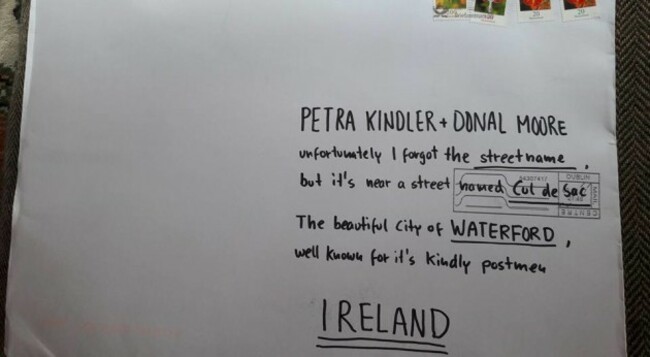 PETRA KINDLER + DONAL MOORE
unfortunately I forgot the streetname,
but it's near a street named Cul de Sac
The beautiful City of WATERFORD,
well known for it's kindly postmen
IRELAND
DUBLIN
MAIL
CENTRE